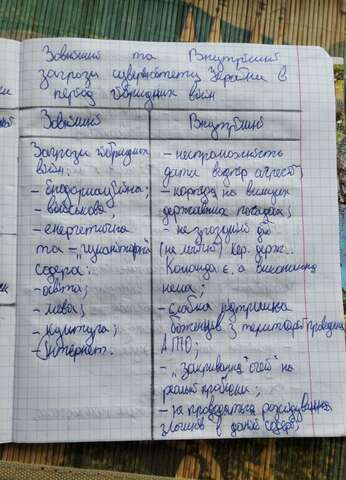 Зовнішні та Внутрішні
загрози суверенітету України в
період гібридних війн
Зовнішні
Внутрішні
Загрози гібридних
війн:
- інформаційна;
- військова;
- енергетична
та - „гуманітарна"
сфера:
- освіта;
- мова;
- культура;
- Інтернет.
- неспроможність
дати відпор агресії;
- корупція на вищих
державних посадах;
- не зрозумілі дії
кер. держ..
Команда є, а виконання
нема;
- слабка підтримка
біженців з території проведення
АТО;
- „закривання" очей на
реальні проблеми;
- не проводиться розслідування
злочинів в даній сфері